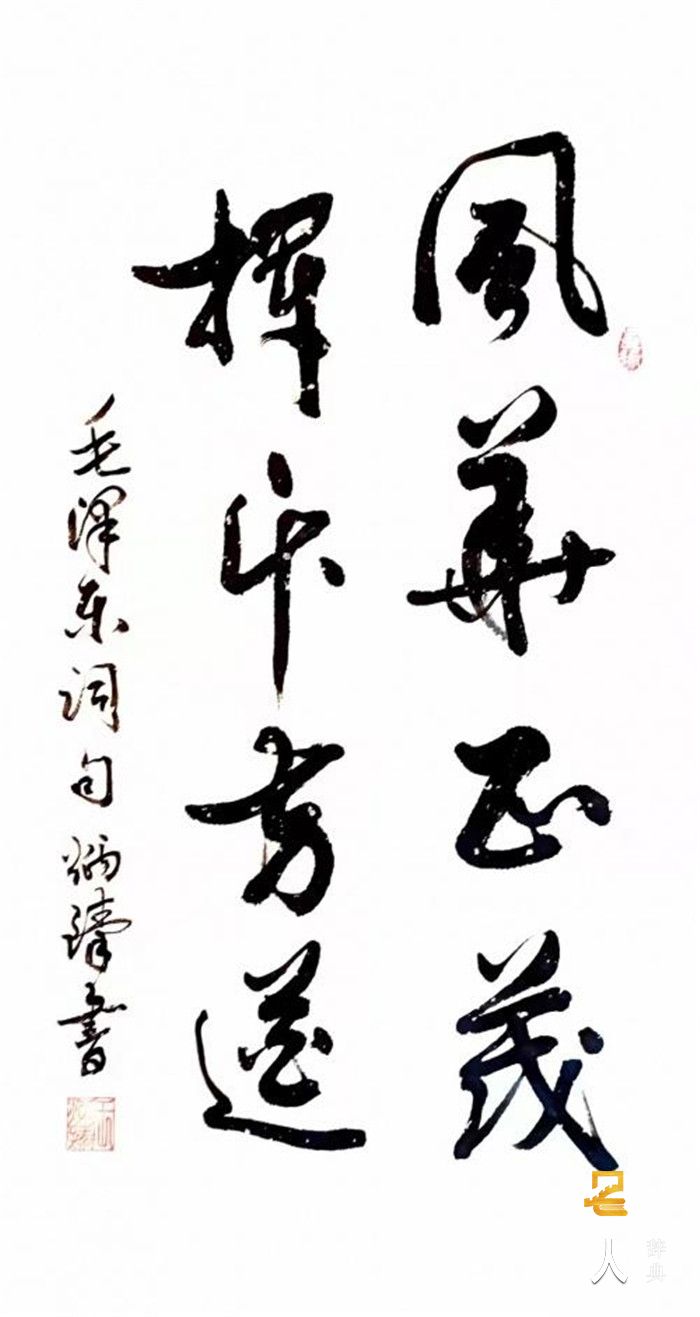 風華正茂
揮斥方遒
毛澤東詞句 炳 書
名人
辞典